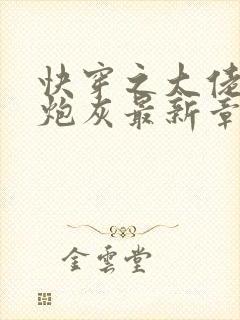 快穿之大佬
炮灰最新章
金雲堂